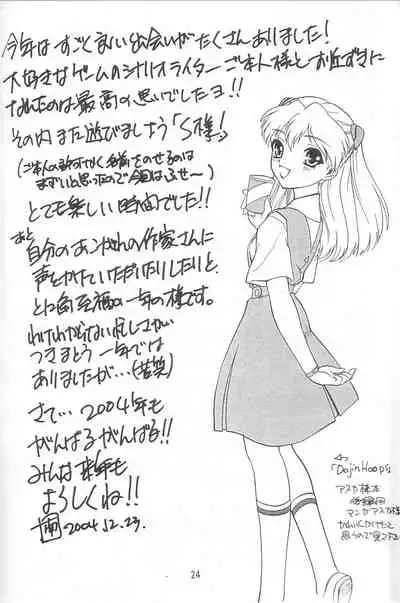 今年はすごくよい出会いがたくさんありました!
大好きなゲームのシナリオライターご本人様とお近ずきに
なれたのは最高の思いでしたヨ!!
その内また遊びましょう「S様」
(ご本人の許すなく名前をのせるのは
まずいと思ったので今回はふせ〜)
とても楽しい時間でした!!
あと
自分のあこがれの作家さんに
声をかけていただいたりしたりと、
とにかく至福の一年の様です。
わけわからない忙しさが
つきまとう一年では
ありましたが…(苦笑)
さて…2004年も
がんばるがんばる!!
みんな来年も
よろしくね!!
2004.12.23.
「DojinHoop's」
アスカ様本
マンガアスカ様
24